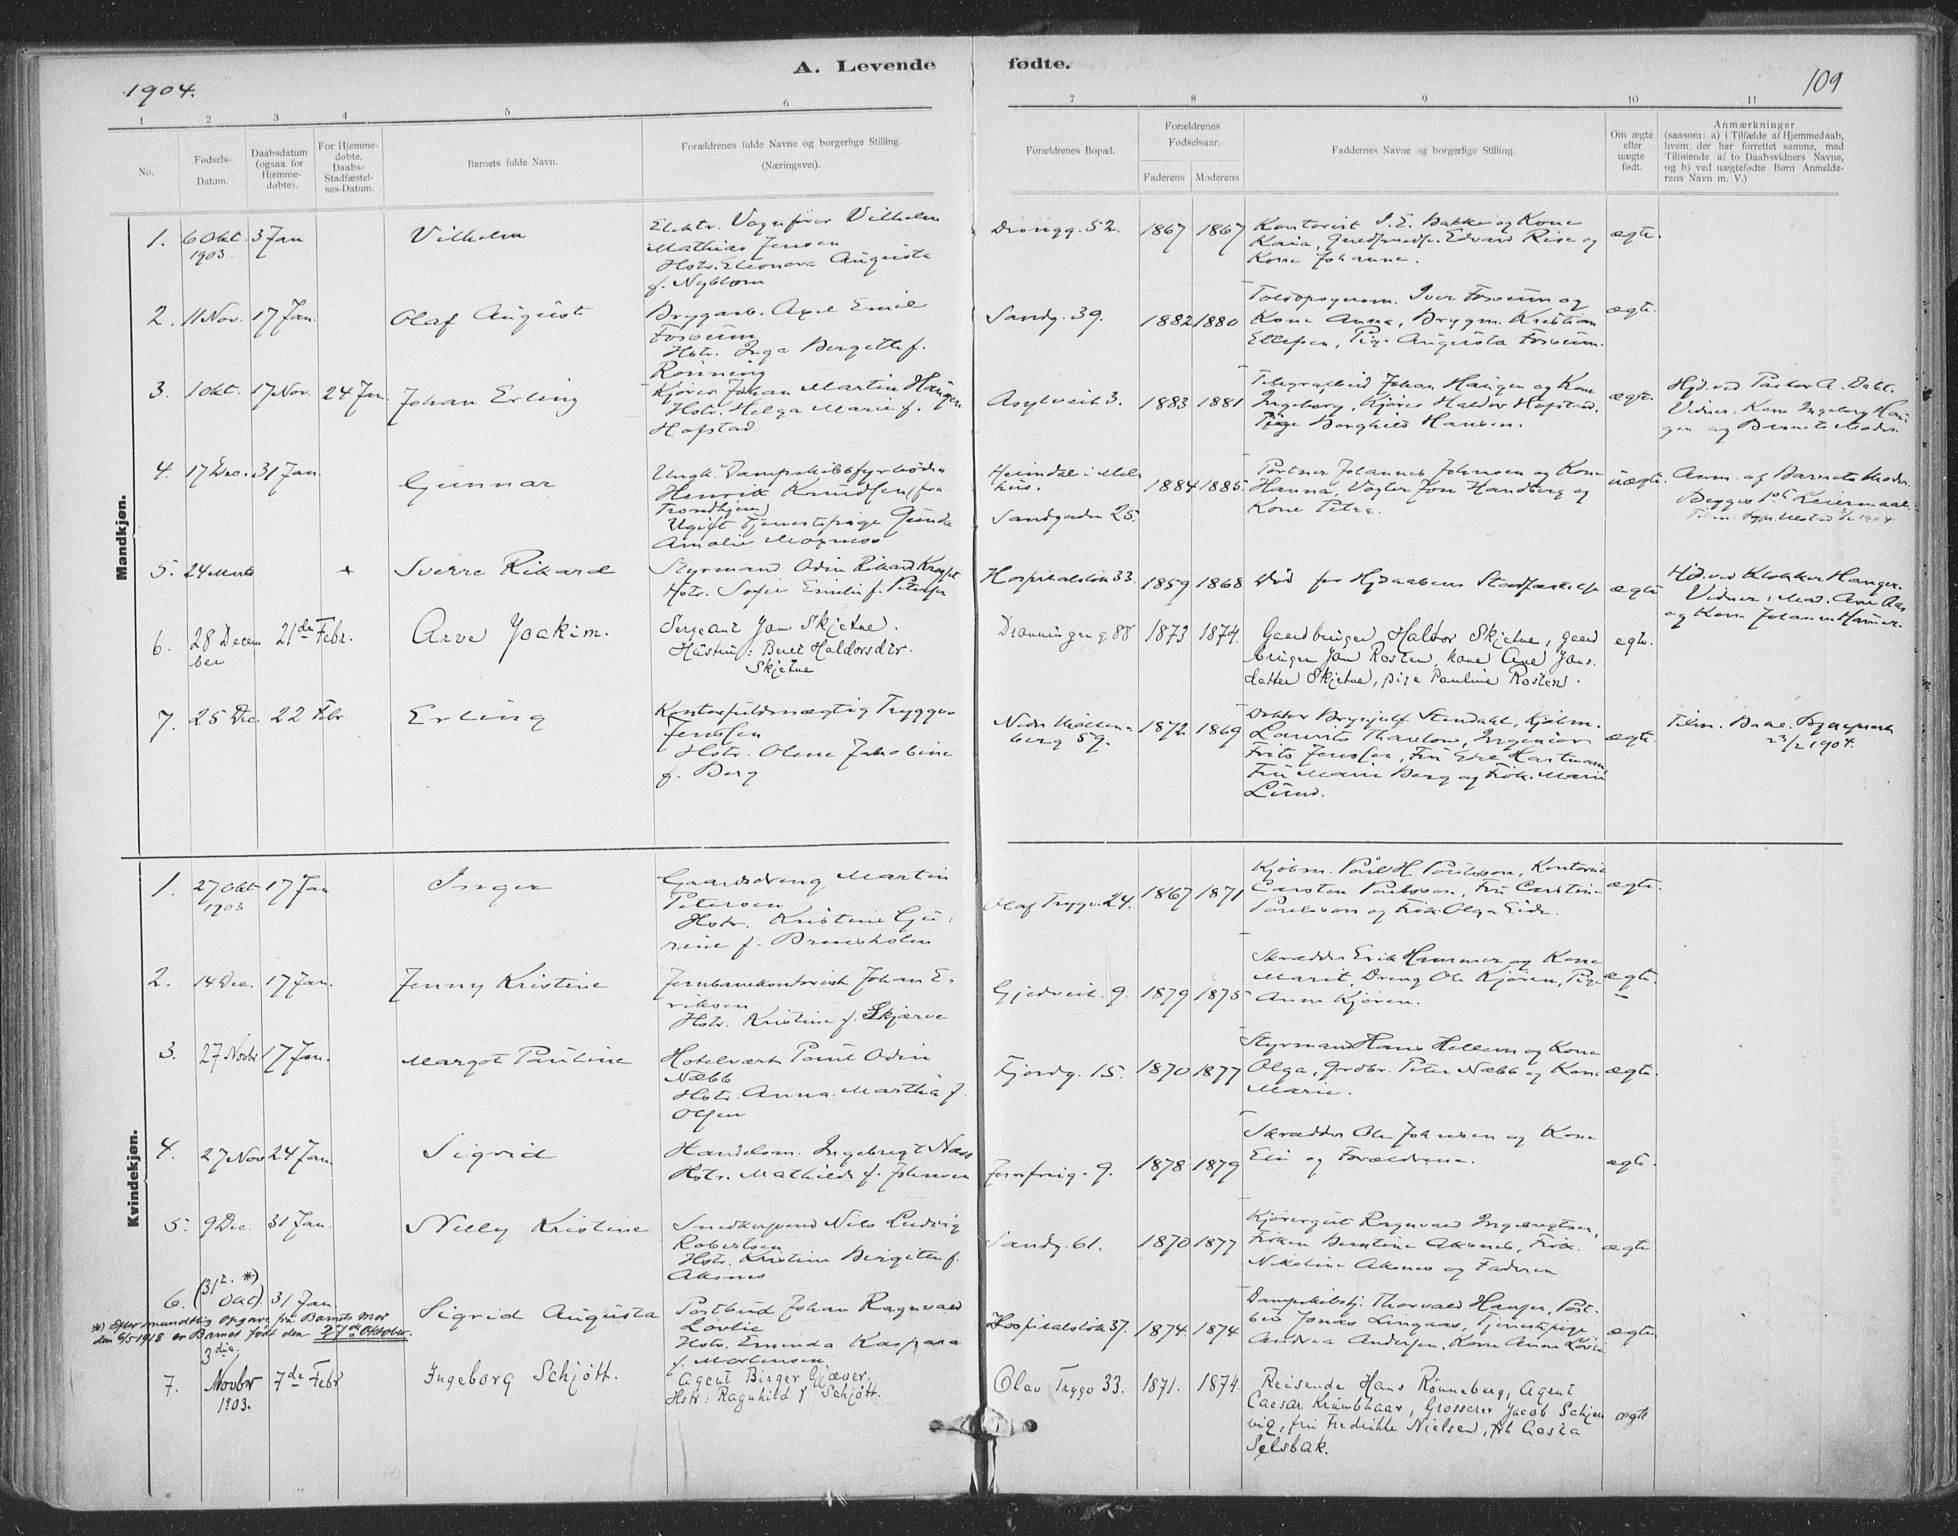 1904.
A. Levende
fødte.
109
1 2 3 4 5 6 7 8 9 10 11
No.
Fødsels-
Datum.
Daabsdatum
(ogsaa for
Hjemme-
døbte).
For Hjemme-
døbte.
Daabs-
Stadfæstel-
ses-Datum.
Barnets fulde Navn.
Forældrenes fulde Navne og borgerlige Stilling.
(Næringsvei).
Forældrenes Bopæl.
Forældrenes
Fødselsaar.
Faderens Moderens
Faddernes Navne og borgerlige Stilling.
Om ægte
eller
uægte
født.
Anmærkninger
(saasom: a) i Tilfælde af Hjemmedaab,
hvem, der har forrettet samme, med
Tilføiende af to Daabsvidners Navne,
og b) ved uægtefødte Børn Anmelde-
rens Navn m. V.)
Mandkjøn.
1. 6 Okt. 3 Jan
1903.
Vilhelm
Elektr. Vognfører Vilhelm
Mathias Jensen
Hstr. Eleonora Augusta
f. Nyblom
Dronngg. 52. 1867 1867
Kontorist I. E. Bakke og Kone
Kaia, Edvard Rise og
Kone Johanne.
ægte.
2. 11 Nov. 17 Jan.
Olaf August
Bryggarb. Axel Emil
Fosseum
Hstr. Inga Bergette f.
Rønning
Sandg. 39. 1882 1880
Iver Fosseum og
Kone Anna, Brygm. Kristian
Ellefsen, Pige Augusta Fosseum.
ægte.
3. 1 Okt. 17 Nov. 24 Jan.
Johan Erling
Kjører Johan Martin Haugen
Hstr. Helga Marie f.
Hofstad
Asylveit 3. 1883 1881
Telegrafbud Johan Haugen og Kone
Ingeborg, Kjører Haldor Hofstad.
Pige Borghild Hansen.
ægte.
Hjd. ved Pastor A. Dahl.
Vidner, Kone Ingeborg Hau-
gen og Barnets Moder.
4. 17 Dec. 31 Jan
Gunnar
Ungk. Dampskibsfyrbøder
Henrik Knudsen (fra
Trondhjem)
Ugift Tjenestepige Gunda
Amalie
Heimdal i Mel-
hus.
Sandgaden 25. 1884 1885.
Portner Johannes Johnsen og Kone
Hanna, Vogter Jon Handberg og
Kone Petra.
uægte.
Anm. af Barnets Moder.
Begges 1ste Leiermaal.
5. 24 Marts +
Sverre Rikard
Styrmand Odin Rikard
Hstr. Sofie Emilie f. Petersen
Hospitalsløk 33. 1859 1868
Død før Hjdaabens Stadfæstelse
ægte
Hjd. ved Klokker Hanger.
Vidner: Mad. Aas
og Kone Johanne Hammer.
6. 28 Decem 21de Febr.
ber
Arve Joakim.
Sergeant Jon Skjetne.
Hustru: Beret Haldorsdtr.
Skjetne
Dronningeng 88 1873 1874.
Gaardbruger Haldor Skjetne, gaard
bruger Jon Rosten, kone Ane Jons-
datter Skjetne, pige Pauline Rosten.
egte.
7. 25 Dec. 22 Febr.
Erling
Kontorfuldmægtig Trygge
Jenssen
Hstr. Olene Jakobine
f. Berg
Nedre Møllen-
berg 59. 1872 1869
Doktor Brynjulf Stendahl, Kjøbm.
Laurits Thaulow, Ingeniør
Frits Jenssen, Fru Hartmann,
Fru Marie Berg og Frøk. Marie
Lund.
ægte.
23/2 1904.
Kvindekjøn.
1. 27 Okt 17 Jan
1903
Inger
Gaardsdreng Martin
Petersen
Hstr. Kristine Gu-
rine f.
Olaf Tryggv. 24. 1867 1871
Kjøbm. Paul H. Poulsson, Kontorist
Carsten Poulsson, Fru
Poulsson og Frøk. Olga Eide.
ægte.
2. 14 Dec. 17 Jan.
Jenny Kristine
Jernbanekontorist Johan E-
riksen
Hstr. Kristine f. Skjærve
Gjedveit. 9. 1879 1875
Skrædder Erik Hammer og Kone
Marit, Dreng Ole Kjøren, Pige
Anne Kjøren.
ægte.
3. 27 Novbr 17 Jan.
Margot Pauline
Hotelvært Paul Odin
Næbb
Hstr. Anna Martha f.
Olsen
Fjordg. 15. 1870 1877
Styrmand Hans Hellem og Kone
Olga, Grdbr. Peter Næbb og Kone
Marie.
ægte.
4. 27 Nov 24 Jan.
Sigrid
Handelsm. Ingebrigt Næss
Hstr. Mathilde f. Johnsen
9. 1878 1879
Skrædder Ole Johnsen og Kone
Eli og Forældrene.
ægte.
5. 9 Dec. 31 Jan.
Nelly Kristine
Snedkersvend Nils Ludvig
Robertsen
Hstr. Kristine Birgitte f.
Aksnes
Sandg. 61. 1870 1877
Kjøregut Ragnvald Ingebrigtsen,
Frøken Berntine Aksnes, Frøk.
Nikoline Aksnes og Faderen
ægte.
6. (31 *)
Okt). 31 Jan
*) Efter mundtlig opgave fra Barnets mor
den 6/5 1918 er Barnet født den 27de Oktober.
Sigrid Augusta
Postbud Johan Ragnvald
Løvlie
Hstr. Emenda Kaspara
f. Mortensen
Hospitalsløk 37. 1874. 1874
Dampskibsfyrb. Thorvald Hansen, Post-
bud Jonas Lingaas, Tjenestepige
Andrea Andersen, Kone Anne Løvlie
ægte.
7. 3die
Novbr 7de Febr
1903.
Ingeborg Schjøtt.
Agent Birger Gjæver.
Hstr: Ragnhild f Schjøtt.
Olav Trygv 33. 1871. 1874
Reisende Hans Rønneberg, Agent
Caesar Krumbhaar, Grosserer Jacob Schjer
vig, fru Fredrikke Nielsen, frk Gosta
Selsbak.
ægte